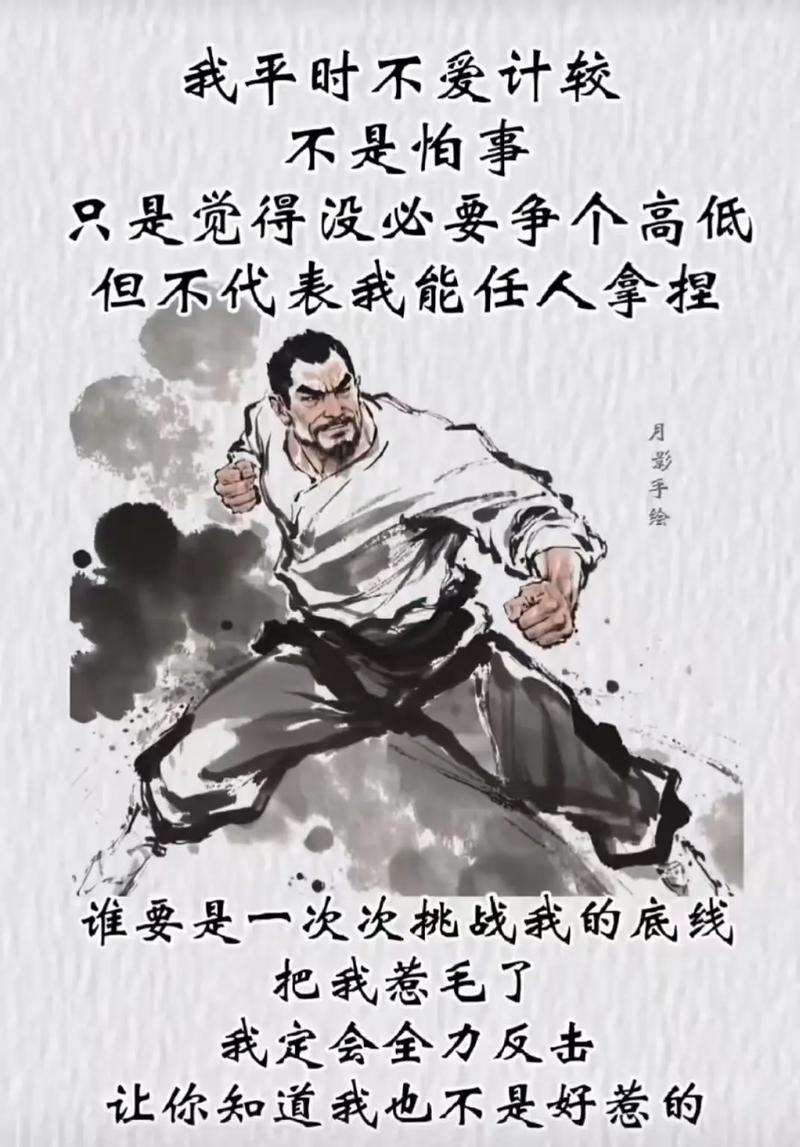 我平时不爱计较
不是怕事
只是觉得没必要争个高低
但不代表我能任人拿捏
月影手绘
谁要是一次次挑战我的底线
把我惹毛了
我定会全力反击
让你知道我也不是好惹的